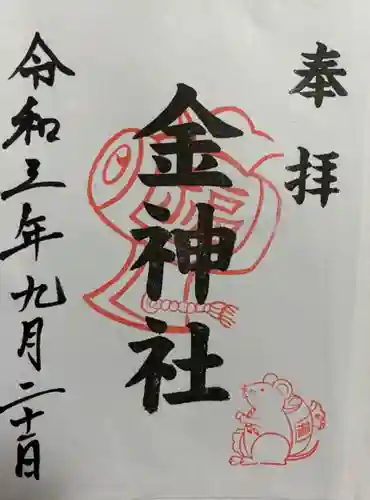 奉拝
金神社
令和三年九月二十一日